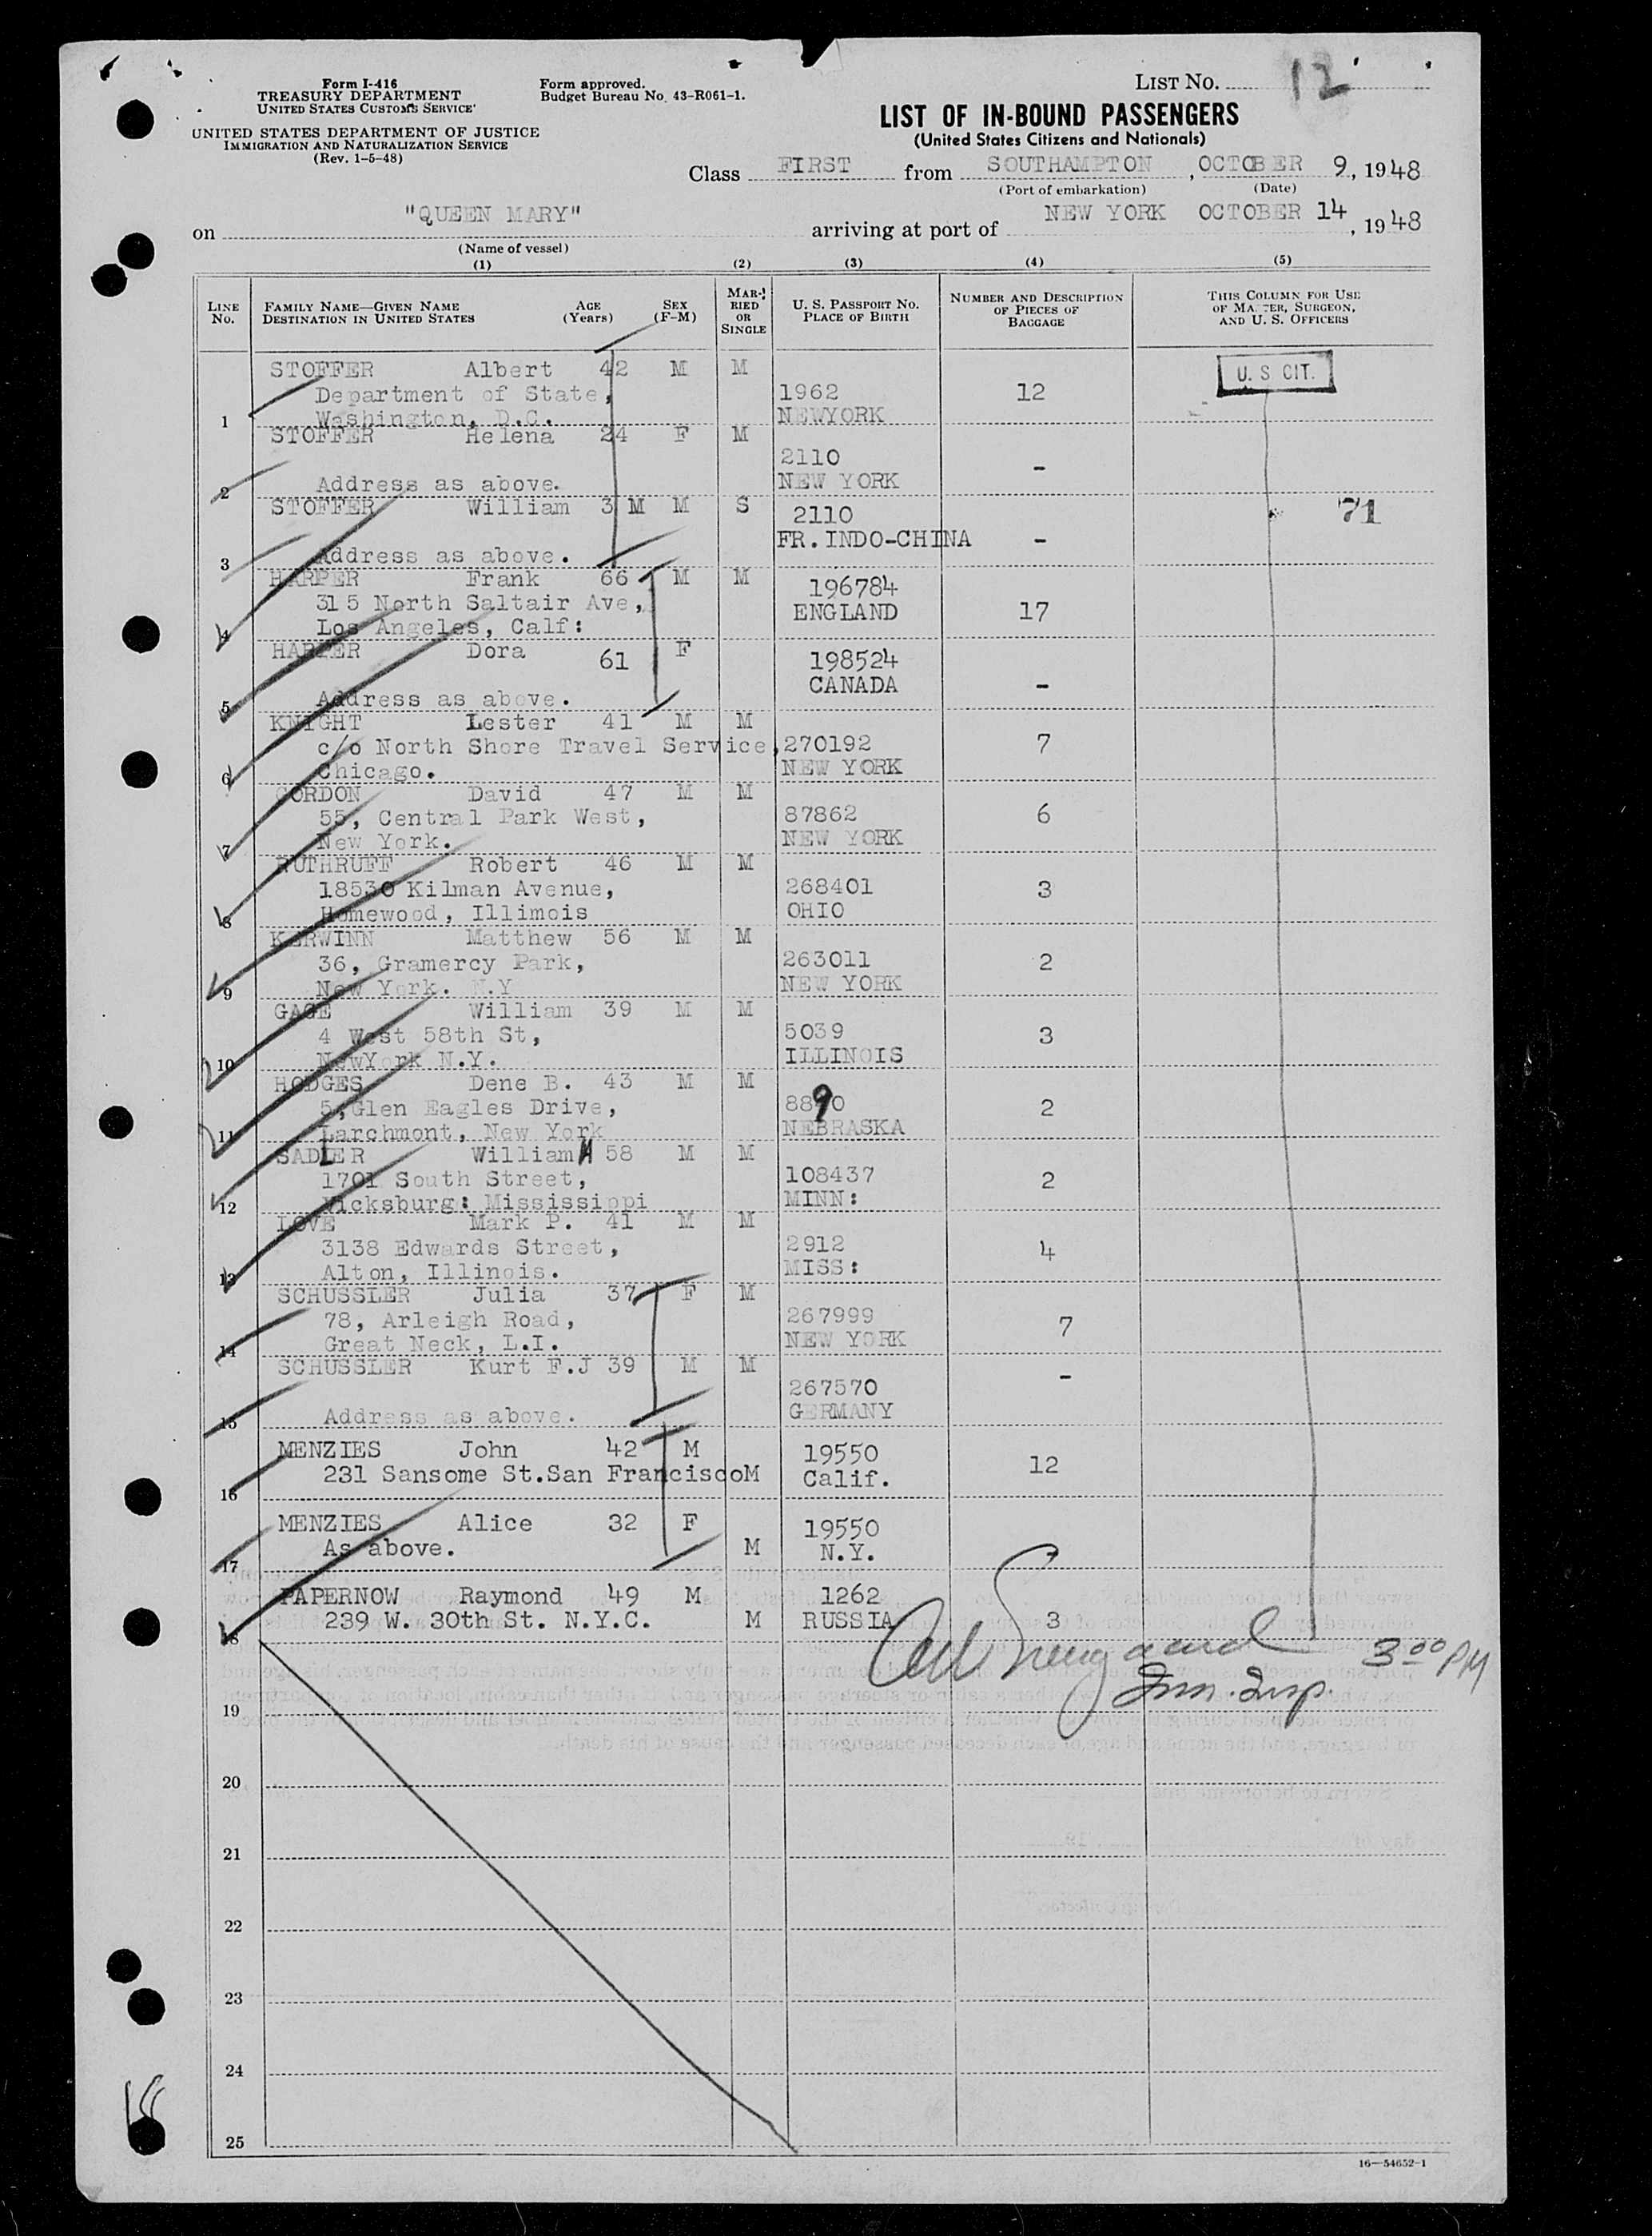 Form I-416
TREASURY DEPARTMENT
UNITED STATES CUSTOMS SERVICE
UNITED STATES DEPARTMENT OF JUSTICE
IMMIGRATION AND NATURALIZATION SERVICE
(Rev. 1-5-48)
Form approved.
Budget Bureau No. 43-R061-1.
LIST NO. 12
LIST OF IN-BOUND PASSENGERS
(United States Citizens and Nationals)
Class FIRST from SOUTHAMPTON, OCTOBER 9, 1948
(Port of embarkation) (Date)
on "QUEEN MARY" arriving at port of NEW YORK OCTOBER 14, 1948
(Name of vessel)
(1) (2) (3) (4) (5)
LINE No. FAMILY NAME—GIVEN NAME DESTINATION IN UNITED STATES AGE (Years) SEX (F-M) MARRIED OR SINGLE U. S. PASSPORT NO. PLACE OF BIRTH NUMBER AND DESCRIPTION OF PIECES OF BAGGAGE THIS COLUMN FOR USE OF MASTER, SURGEON, AND U. S. OFFICERS
STOFFER Albert 42 M M
U. S CIT.
Department of State, 1962 12
1 Washington, D.C. NEWYORK
STOFFER Helena 24 F M
2110 -
2 Address as above. NEW YORK
STOFFER William 3 M M S 2110 71
FR. INDO-CHINA -
3 Address as above.
HARPER Frank 66 M M 196784
315 North Saltair Ave, ENGLAND 17
4 Los Angeles, Calf:
HARPER Dora 61 F 198524
CANADA -
5 Address as above.
KNIGHT Lester 41 M M
c/o North Shore Travel Service, 270192 7
6 Chicago. NEW YORK
GORDON David 47 M M
55, Central Park West, 87862 6
7 New York. NEW YORK
RUTHRUFF Robert 46 M M
18530 Kilman Avenue, 268401 3
8 Homewood, Illimois OHIO
KERWINN Matthew 56 M M
36, Gramercy Park, 263011 2
9 New York. N.Y NEW YORK
GAGE William 39 M M
4 West 58th St, 5039 3
10 NewYork N.Y. ILLINOIS
HODGES Dene B. 43 M M
5,Glen Eagles Drive, 8890 2
11 Larchmont, New York NEBRASKA
SADLER William H 58 M M
1701 South Street, 108437 2
12 Vicksburg: Mississippi MINN:
LOVE Mark P. 41 M M
3138 Edwards Street, 2912 4
13 Alton, Illinois. MISS:
SCHUSSLER Julia 37 F M
78, Arleigh Road, 267999 7
14 Great Neck, L.I. NEW YORK
SCHUSSLER Kurt F.J 39 M M
267570 -
15 Address as above. GERMANY
MENZIES John 42 M 19550
231 Sansome St.San Francisco M Calif. 12
16
MENZIES Alice 32 F 19550
As above. M N.Y.
17
PAPERNOW Raymond 49 M 1262
239 W. 30th St. N.Y.C. M RUSSIA 3
18
3 00 PM
Imm. Insp.
19
20
21
22
23
24
25
18
16—54652-1